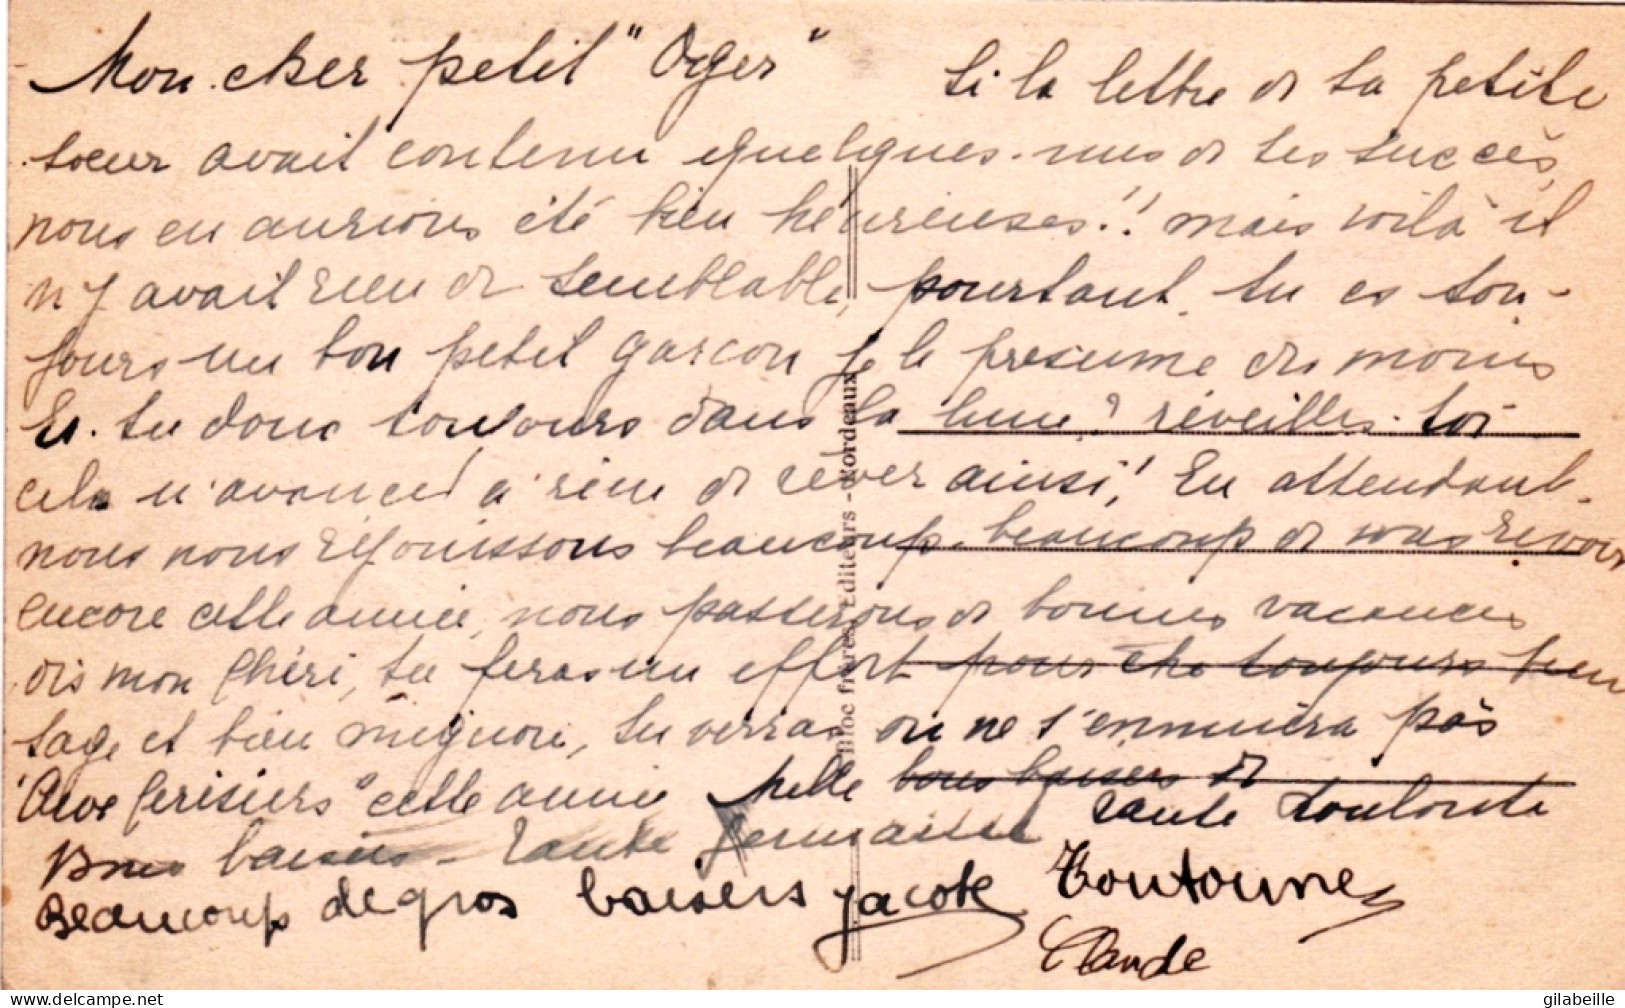 Mon cher petit "Oger" Si la lettre de ta petite
soeur avait contenu quelques-uns de tes succès,
nous en aurions été bien heureuses!! mais voilà il
n'y avait rien de semblable, pourtant tu es tou-
jours un bon petit garçon je le présume du moins
Es-tu donc toujours dans la lune? réveilles-toi
cela n'avance à rien de rêver ainsi! En attendant
nous nous réjouissons beaucoup, beaucoup de vous revoir
encore cette année, nous passerons de bonnes vacances
dis mon Chéri, tu feras un effort pour être toujours bien
sage et bien mignon, tu verras on ne s'ennuiera pas
"Aux Cerisiers" cette année Mille bons baisers de
Bons baisers - Tante Germaine Tante Louloute
Beaucoup de gros baisers Jacote Toutoune
Claude
frères, Éditeurs - Bordeaux
delcampe.net
gilabeille